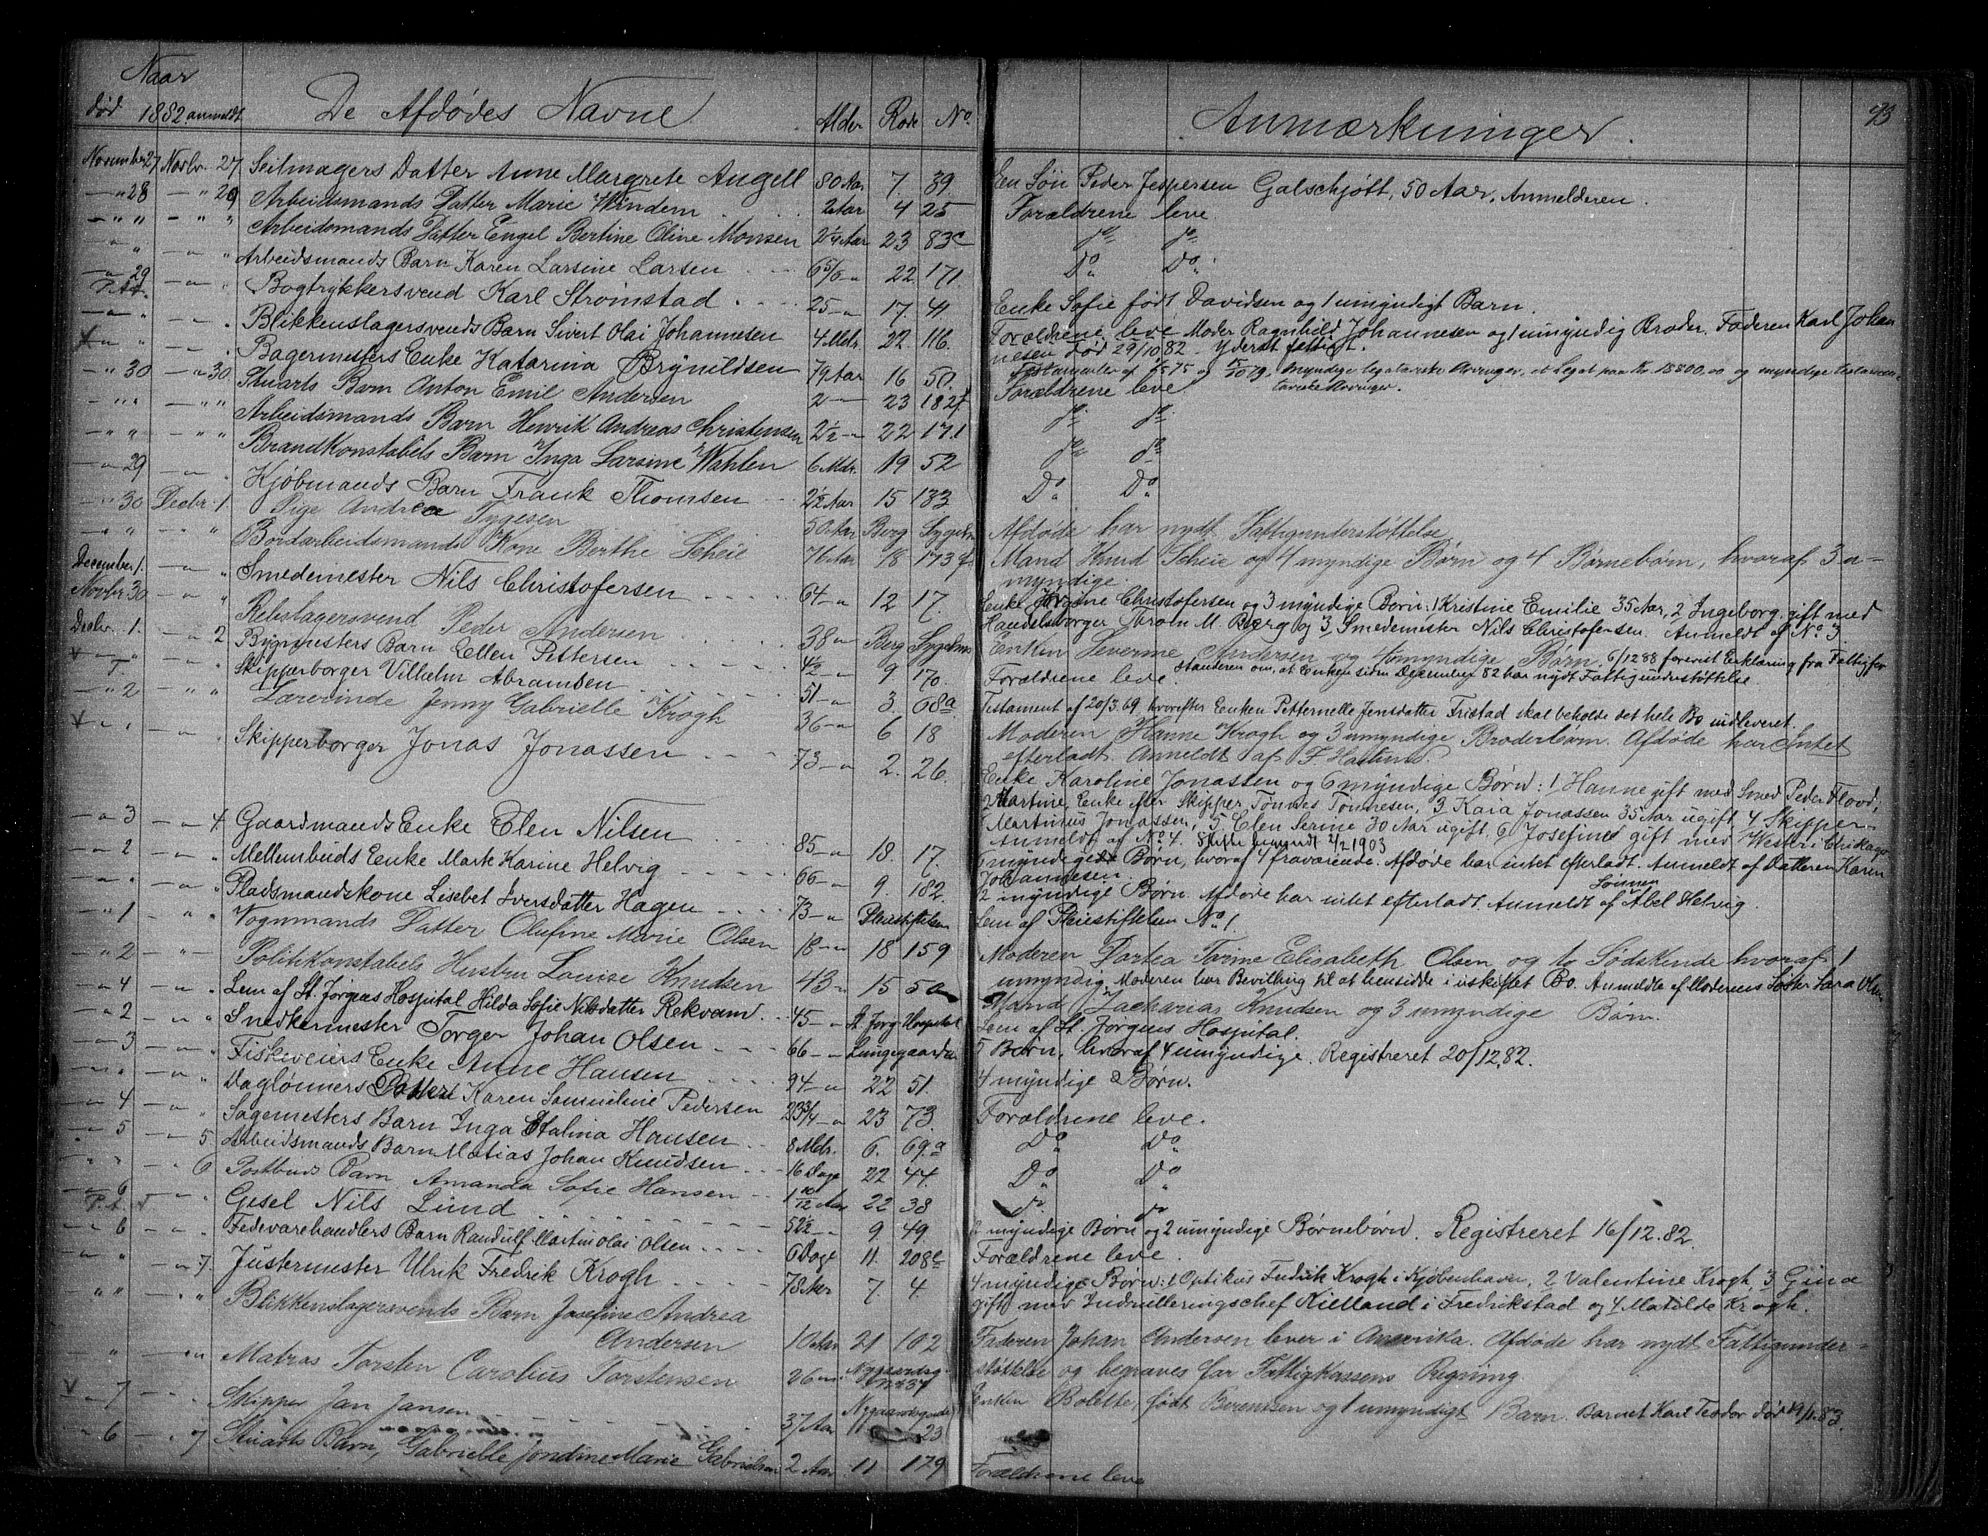 Naar
død 1882 anmeldt De Afdødes Navne Alder Rode No. Anmærkninger. 93
November 27 Novbr. 27 Seilmagers Datter Anne Margrete Angell 80 Aar 7. 39. En Søn Peder Jespersen Galschjøtt, 50 Aar, Anmelderen.
-"- 28 -"- 29 Arbeidsmands Datter Marie Windem 2 Aar 4 25 Forældrene leve
" " - " " Arbeidsmands Datter Engel Bertine Oline Monsen 2 1/4 Aar 23 83c do do
" - " - " Arbeidsmands Barn Karen Larsine Larsen 6 5/6 " 22 171. Do Do
-"- 29 -"- " Bogtrykkersvend Karl Strømstad 25 -"- 17 41 Enke Sofie født Davidsen og 1 umyndigt Barn.
-"- " -"- " Blikkenslagersvends Barn Sivert Olai Johannesen 4 Mdr. 22 116. Forældrene leve Moder Ragnhild Johannesen og 1 umyndig Broder. Faderen Karl Johan
nesen død 29/10 82 - Yderst fattigt.
-"- " -"- " Bagermesters Enke Katarina Brynildsen 79 Aar 16 50. myndige legatariske Arvinger, et Legat paa Kr 15500,00 og myndige testamen-
tariske Arvinger.
-"- 30 -"- 30 Stuarts Barn Anton Emil Andersen 2 -"- 23 182f Forældrene leve
" " - " " Arbeidsmands Barn Henrik Andreas Christensen 2 1/2 -"- 22 171 do do
" " - " " Brandkonstabels Barn Inga Larsine Wahlen 6 Mdr. 19 52 do do
-"- 29 -"- " Kjøbmands Barn Frank Thomsen 2 1/2 Aar 15 133 Do Do
-"- 30 Decbr. 1. Pige Andrea Tygesen 50 Aar Berg Sygehs. Afdøde har nydt Fattigunderstøttelse
" " - " " Bordarbeidsmands Kone Berthe Scheie 76 Aar 18 173 Mand Knud Scheie og 4 myndige Børn og 4 Børnebørn, hvoraf 3 u-
myndige.
December 1. -"- " Smedemester Nils Christofersen 64 -"- 12 17. Enke Jørgine Christofersen og 3 myndige Børn: 1 Kristine Emilie 35 Aar, 2 Ingeborg, gift med
Handelsborger M. Berg og 3, Smedemester Nils Christofersen. Anmeldt af No 3.
Novbr. 30 -"- " Rebslagersvend Peder Andersen 38 " Berg Sygehus Enken Severine Andersen og 4 umyndige Børn. 6/12 88 forevist Erklæring fra Fattigfor
standeren om, at Enken siden December 82 har nydt Fattigunderstøttelse
Decbr. 1. -"- 2 Bygmesters Barn Ellen Pettersen 4 1/2 -"- 9 170. Forældrene leve.
-"- " -"- " Skipperborger Vilhelm Abramsen 51 -"- 3. 68a Testament af 20/3 69 hvorefter Enken Petternelle Jensdatter Fristad skal beholde det hele Bo indleveret.
-"- 2 " " Lærerinde Jenny Gabrielle Krogh 36 -"- 6 18 Moderen Hanne Krogh og 3 umyndige Broderbørn. Afdøde har Intet
efterladt. Anmeldt af
-"- " -"- " Skipperborger Jonas Jonassen 73 -"- 2. 26. Enke Karoline Jonassen og 6 myndige Børn: 1 Hanne gift med Smed Peder Flood,
2 Martine, Enke efter Skipper Tønnes Tønnesen, 3 Kaia Jonassen 35 Aar ugift, 4 Skipper
Martinus Jonassen, 5 Elen Serine 30 Aar ugift, 6 Josefine gift med
Anmeldt af No 4. 1903
-"- 3 -"- 4. Gaardmands Enke Elen Nilsen 85 -"- 18. 17. 6 myndige Børn, hvoraf 4 fraværende. Afdøde har intet efterladt. Anmeldt af Datteren Karen
Johannesen.
-"- 2 -"- " Mellembuds Enke Marte Karine Helvig 66 -"- 9. 182. 2 myndige Børn. Afdøde har intet efterladt. Anmeldt af Sønnen Abel Helvig.
-"- " -"- " Pladsmandskone Lisebet Iversdatter Hagen 73 -"- Pleiestiftelsen Lem af Pleiestiftelsen No 1.
-"- 1 -"- " Vognmands Datter Olufine Marie Olsen 18 -"- 18 159 Moderen Dortea Tomine Elisabeth Olsen og to Sødskende hvoraf 1
umyndig. Moderen har Bevilling til at hensidde i uskiftet Bo. Anmeldt af Moderens Søster Sara Olsen
-"- 2 -"- Politikonstabels Hustru Louise Knudsen 43 -"- 15 50 Mand Zacharias Knudsen og 3 umyndige Børn.
-"- 4 -"- " Lem af St. Jørgens Hospital Hilda Sofie Nilsdatter Rekvam 45 -"- St Jørg Hospital Lem af St. Jørgens Hospital.
-"- 2 -"- " Snedkermester Torger Johan Olsen 66 -"- Lungegaarden 5 Børn, hvoraf 4 umyndige. Registreret 20/12 82.
-"- 3 -"- " Fiskeveiers Enke Anne Hansen 94 -"- 22 51. 4 myndige Børn.
-"- " -"- " Dagløners Datter Karen Samueline Pedersen 23 3/4 -"- 23 73. Forældrene leve.
-"- 4 -"- " Sagemesters Barn Inga Stalina Hansen 8 Mdr. 6. 69.a Do Do
-"- 5 -"- 5 Arbeidsmands Barn Matias Johan Knudsen 16 Dage 22 44. Do Do
" " -"- 6 Postbuds Barn Amanda Sofie Hansen 1 10/12 Aar 22 38 do do
-"- 6 -"- " Gjesel Nils Lund 52 1/2 -"- 9 49 myndige Børn og 2 umyndige Børnebørn. Registreret 16/12.82.
-"- 6 -"- " Fedevarehandlers Barn Randulf Martin Olai Olsen 6 Dage 11. 208c Forældrene leve.
-"- " -"- 7. Justermester Ulrik Fredrik Krogh 78 Aar 7 4 4 myndige Børn: 1 Optikus Fredrik Krogh i Kjøbenhavn, 2 Valentine Krogh, 3, Gina
gift med Indrulleringschef Kielland i Fredrikstad og 4 Matilde Krogh.
" " - " " Blikkenslagersvends Barn Josefine Andrea
Andersen 10 Aar 21 102 Faderen Johan Andersen lever i Amerika. Afdøde har nydt Fattigunder-
støttelse og begraves for Fattigkassens Regning.
" -"- " Matros Torsten Carolius Torstensen 26 -"- Nygaardsg.
-"- 7 - " Skipper Jan Jansen 37 Aar Nygaardsgade 23 Enken Bolette, født Berentsen og 1 umyndigt Barn. Barnet Karl Teodor død 19/1.83.
-"- 6 -"- 7 Stuarts Barn, Gabrielle Jondine Marie Gabrielsen 2 Aar 11 179 Forældrene leve